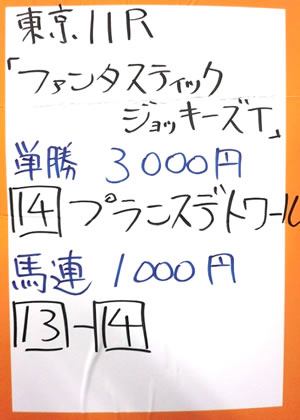 東京11R
「ファンタスティック
ジョッキーズT」
単勝 3000円
14 プランスデトワール
馬連 1000円
13-14